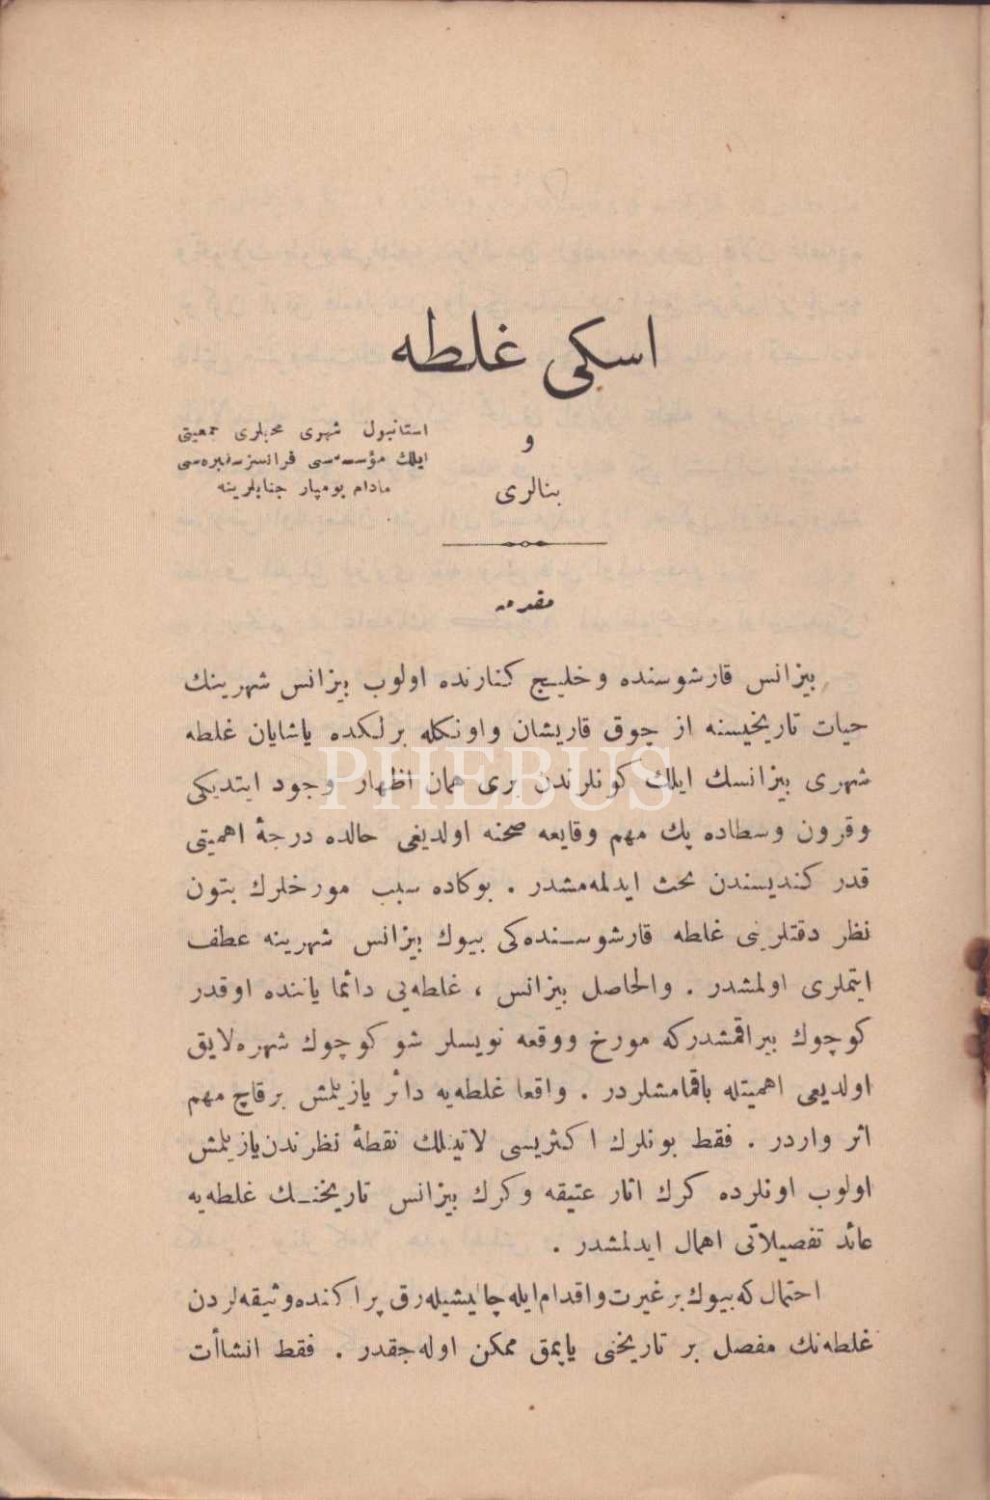 اسكی غلطه
و
بنالری
استانبول شهری محبلری جمعیتی
ایلك مؤسسه‌سی فرانسز سفیره‌سی
مادام بومپار جنابلرینه
مقدمه
بیزانس قارشوسنده و خلیج كنارنده اولوب بیزانس شهرینك
حیات تاریخیسنه از چوق قاریشان واونكله برلكده یاشایان غلطه
PHEBUS
شهری بیزانسك ایلك كونلرندن بری همان اظهار وجود ایتدیكی
وقرون وسطاده پك مهم وقایعه صحنه اولدیغی حالده درجۀ اهمیتی
قدر كندیسندن بحث ایدلمه‌مشدر . بوكاده سبب مورخلرك بتون
نظر دقتلرنی غلطه قارشوسنده‌كی بیوك بیزانس شهرینه عطف
ایتملری اولمشدر . والحاصل بیزانس ، غلطه‌یی دائما یاننده اوقدر
كوچوك بیراقمشدركه مورخ ووقعه نویسلر شو كوچوك شهره لایق
اولدیغی اهمیتله باقمامشلردر . واقعا غلطه‌یه دائر یازیلمش برقاچ مهم
اثر واردر . فقط بونلرك اكثریسی لاتینلك نقطۀ نظرندن یازیلمش
اولوب اونلرده كرك اثار عتیقه وكرك بیزانس تاریخنك غلطه‌یه
عائد تفصیلاتی اهمال ایدلمشدر .
احتمال كه بیوك بر غیرت و اقدام ایله چالیشیله‌رق پراكنده وثیقه‌لردن
غلطه‌نك مفصل بر تاریخنی یاپمق ممكن اوله‌جقدر . فقط انشاأت